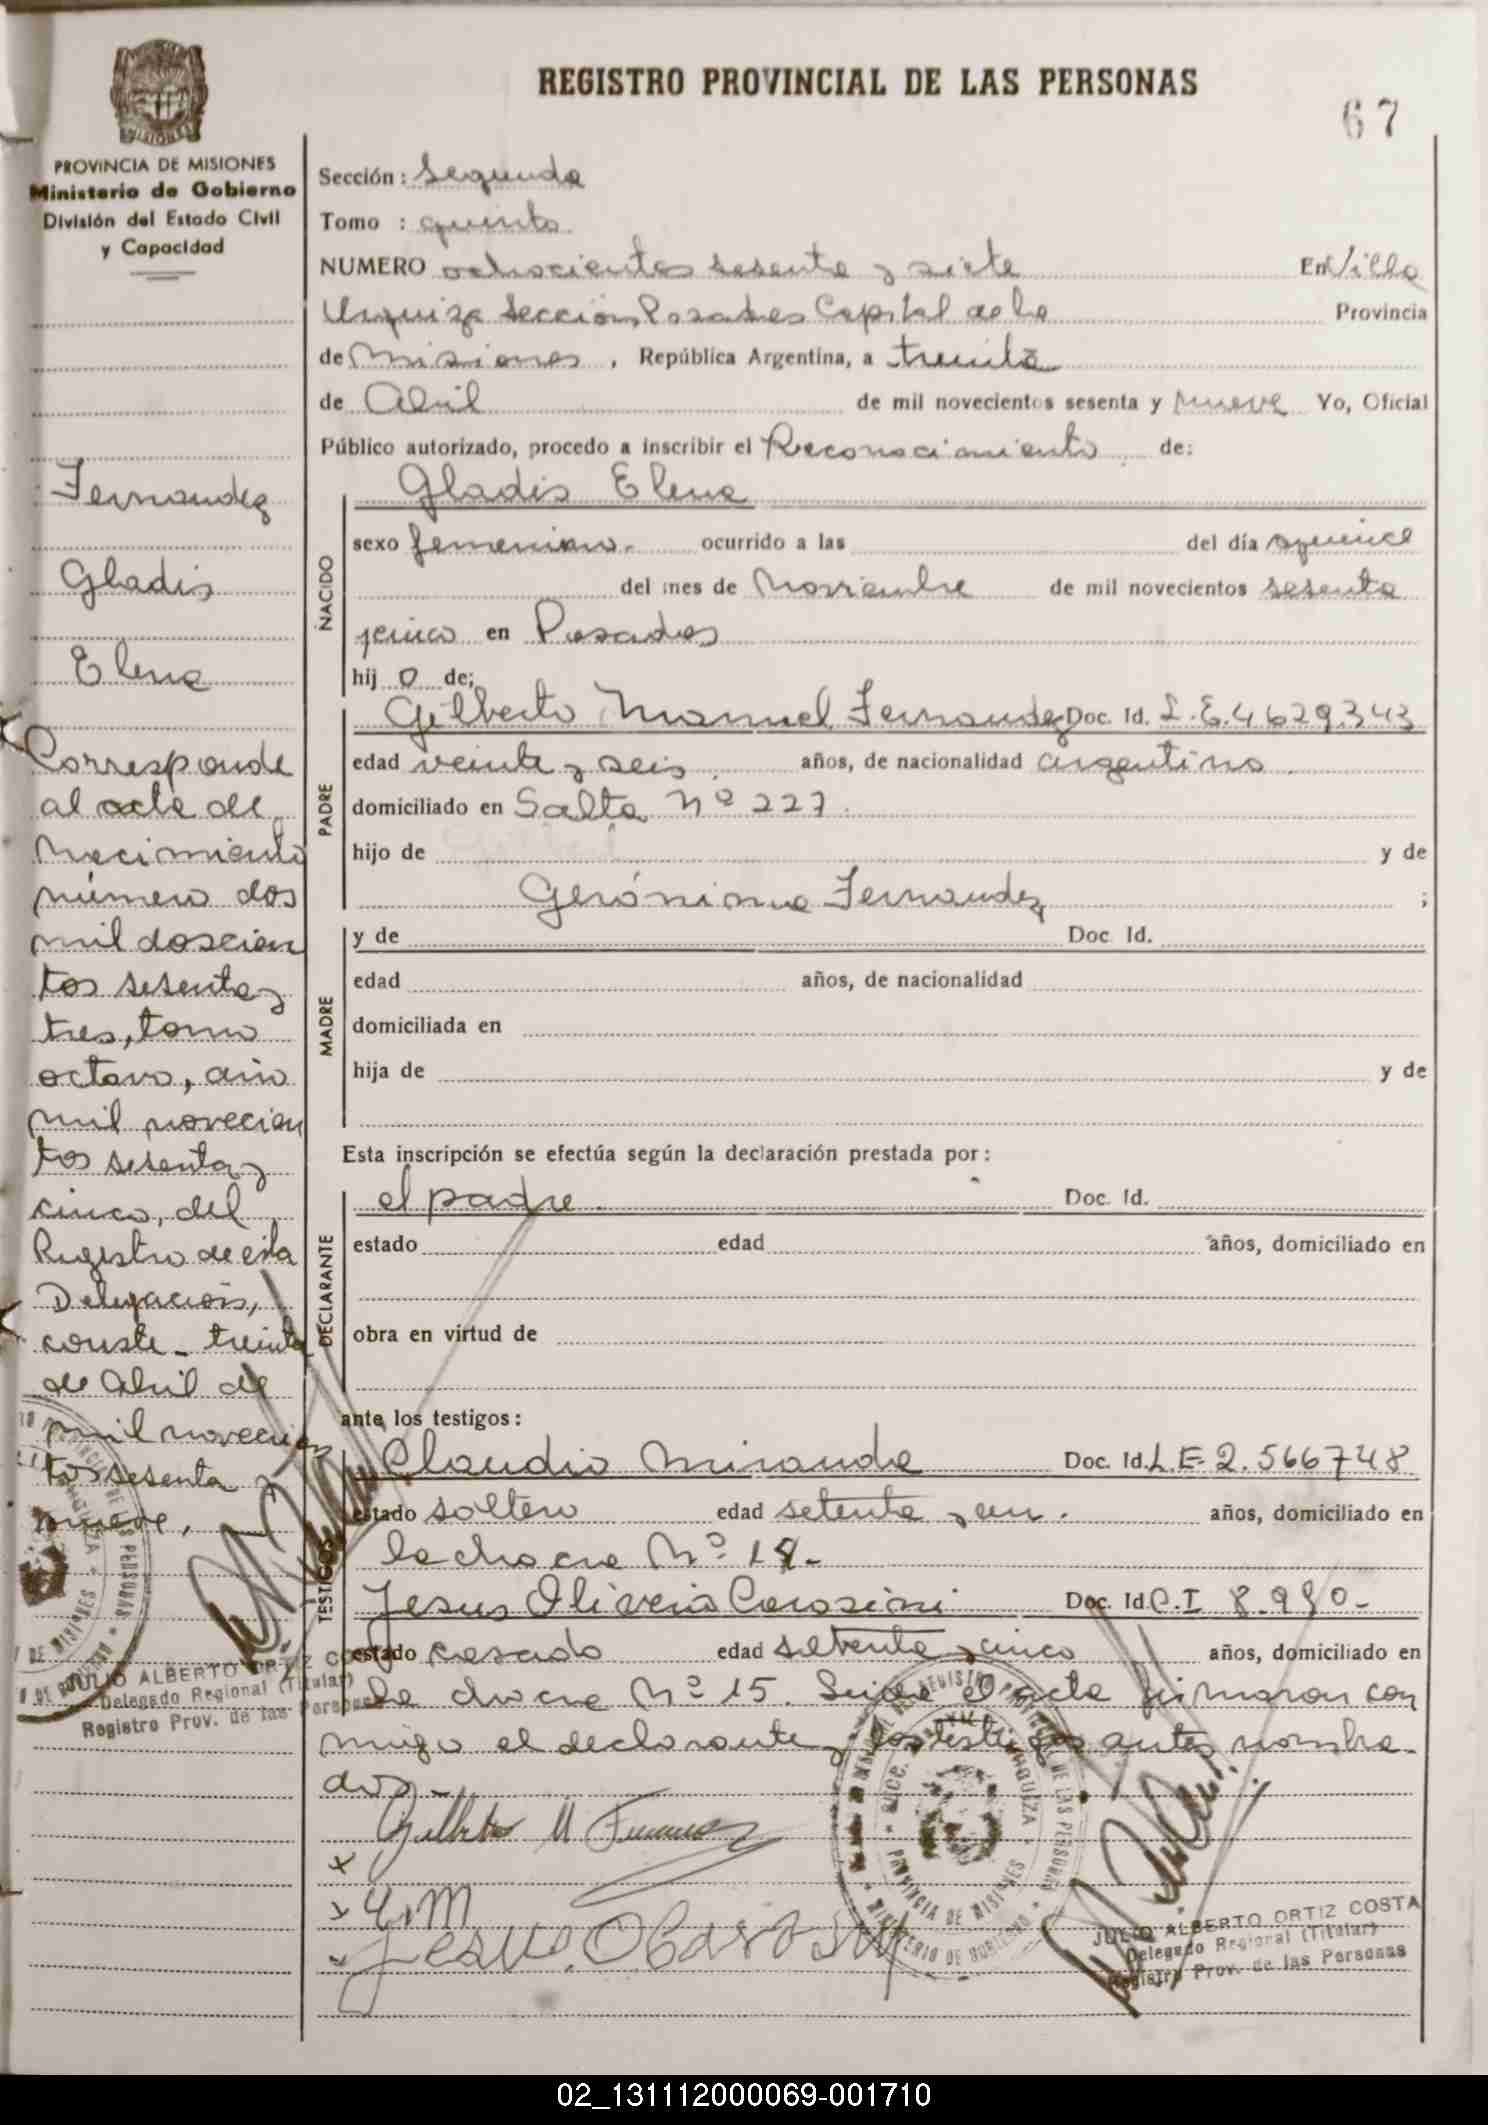 REGISTRO PROVINCIAL DE LAS PERSONAS
67
MISIONES
PROVINCIA DE MISIONES
Ministerio de Gobierno
División del Estado Civil
y Capacidad
Fernandez
Gladis
Elena
Corresponde
al acta de
nacimiento
número dos
mil doscien
tos sesenta y
tres, tomo
octavo, año
mil novecien
tos sesenta y
cinco, del
Registro de esta
Delegación,
conste - treinta
de Abril de
mil novecien
tos sesenta y
nueve,
JULIO ALBERTO ORTIZ COSTA
Delegado Regional (Titular)
Registro Prov. de las Personas
Sección : Segunda
Tomo : quinto
NUMERO ochocientos sesenta y siete En Villa
Urquiza Sección Posadas Capital de la Provincia
de Misiones , República Argentina, a treinta
de Abril de mil novecientos sesenta y nueve Yo, Oficial
Público autorizado, procedo a inscribir el Reconocimiento de:
Gladis Elena
NACIDO
sexo femenino. ocurrido a las del día quince
del mes de Noviembre de mil novecientos sesenta
y cinco en Posadas
hij o de;
PADRE
Gilberto Manuel Fernandez Doc. Id. L.E.4629343
edad veinte y seis años, de nacionalidad argentino
domiciliado en Salta Nº 227.
hijo de y de
Gerónima Fernandez ;
MADRE
y de Doc. Id.
edad años, de nacionalidad
domiciliada en
hija de y de
Esta inscripción se efectúa según la declaración prestada por :
DECLARANTE
el padre Doc. Id.
estado edad años, domiciliado en
obra en virtud de
ante los testigos :
TESTIGOS
Claudio Miranda Doc. Id. L.E-2.566748
estado soltero edad setenta y un. años, domiciliado en
la chacra Nº 14-
Jesus Oliverio Doc. Id. C.I 8.980-
estado casado edad setenta y cinco años, domiciliado en
la chacra Nº 15. Leida el acta firmaron con
migo el declarante y los testigos antes nombra
dos -
Gilberto M Fernandez
JULIO ALBERTO ORTIZ COSTA
Delegado Regional (Titular)
Registro Prov. de las Personas
02_131112000069-001710